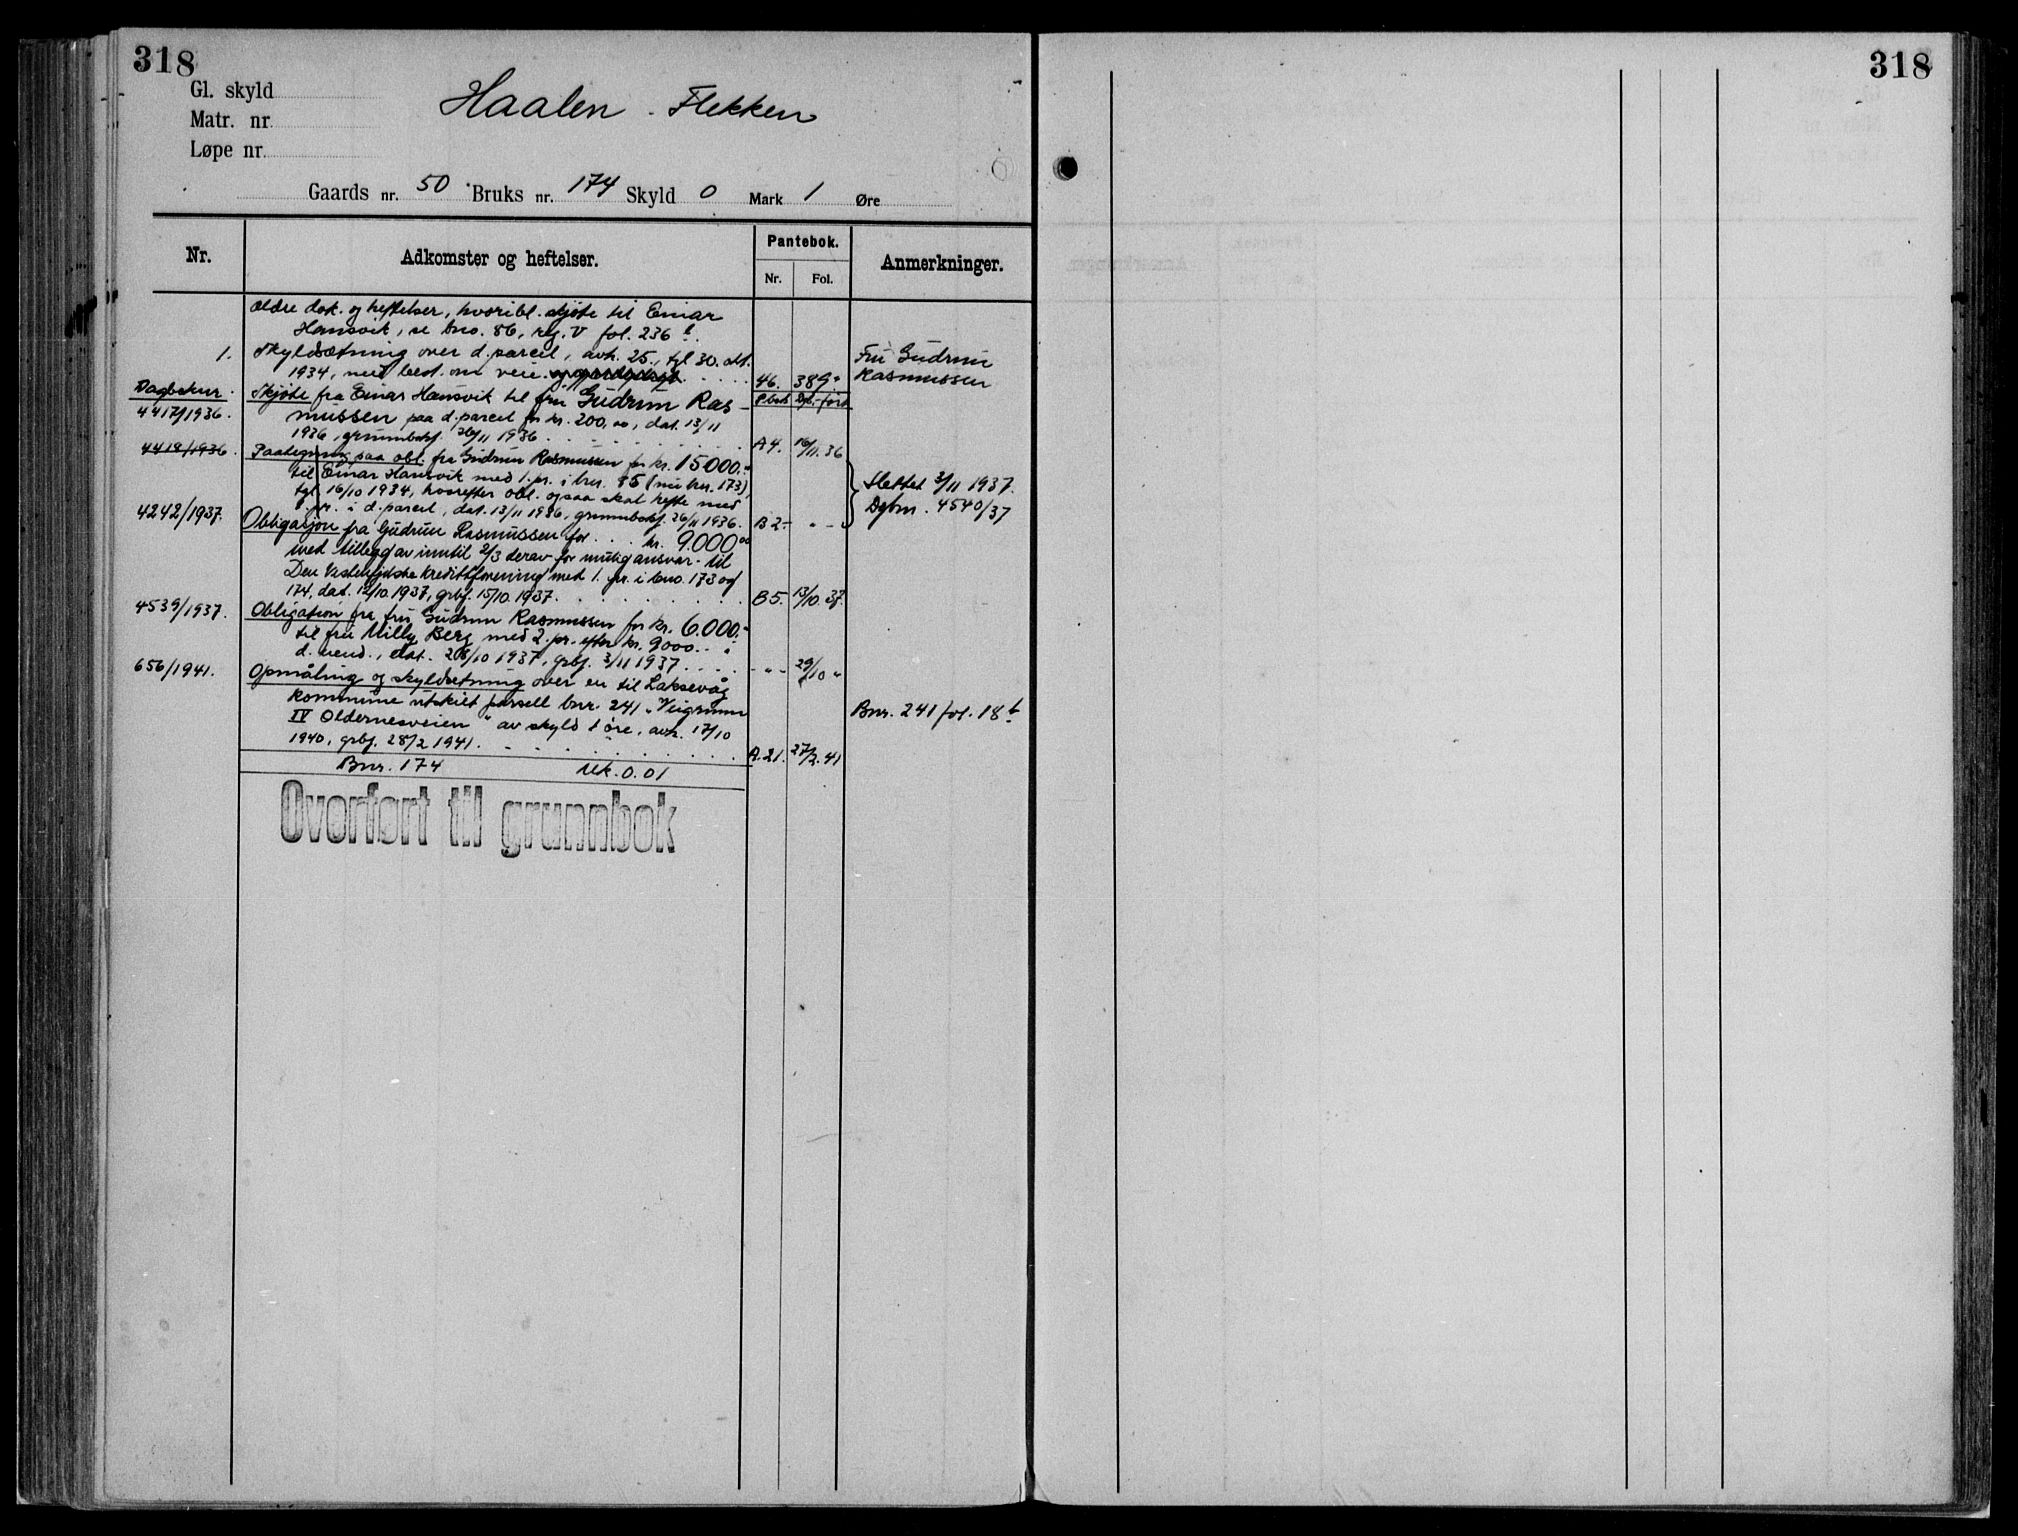 318
318
Gl. skyld
Matr. nr
Løpe nr.
Haalen - Flekken
Gaards nr. 50 Bruks nr. 174 Skyld 0 Mark 1 Øre
Nr. Adkomster og heftelser. Pantebok. Nr. Fol. Anmerkninger.
Ældre dok. og heftelser, hvoribl. skjøte til Einar
Hansvik, se bno. 86, reg. V fol. 236 b.
1. Skyldsætning over d. parcel, avh. 25., tgl 30. okt. Fru Gudrun
1934, med best. om veie 46. 389a Rasmussen
Dagboknr. Skjøte fra Einar Hansvik til fru Gudrun Ras- P.bok Dgb.-ført
4417/1936. mussen paa d. parcel for kr. 200,00, dat. 13/11
1936, grunnboksf. 26/11 1936. A4. 16/11. 36
4418/1936. Paategning paa obl. fra Gudrun Rasmussen for kr. 15000.-
til Einar Hansvik med 1. pr. i bnr. 85 (nu bnr. 173), Slettet 3/11 1937.
tgl. 16/10 1934, hvorefter obl. ogsaa skal hefte med
1. pr. i d. parcel, dat. 13/11 1936, grunnboksf. 26/11 1936. B2. - " - Dgbnr. 4540/37
4242/1937. Obligasjon fra Gudrun Rasmussen for . . . kr. 9.000.00
med tillegg av inntil 2/3 derav for mulig ansvar til
Den Vestenfjelske Kredittforening med 1. pr. i bno. 173 og
174, dat. 12/10. 1937, grbf. 15/10. 1937. B5. 13/10. 37.
4539/1937. Obligation fra fru Gudrun Rasmussen for kr. 6.000.-
til fru Milly Berg med 2. pr. efter kr. 9000.- i
d. eiend., dat. 28/10 1937, grbf. 3/11 1937. - " - 29/10 "
656/1941. Opmåling og skyldsetning over en til Laksevåg
kommune utskilt parsell bnr. 241 "Veigrunn Bnr. 241 fol. 18 b
IV Oldernesveien" av skyld 1 øre, avh. 17/10
1940, grbf. 28/2 1941. A.21. 27/2. 41
Bnr. 174 Mk. 0.01
Overført til grunnbok